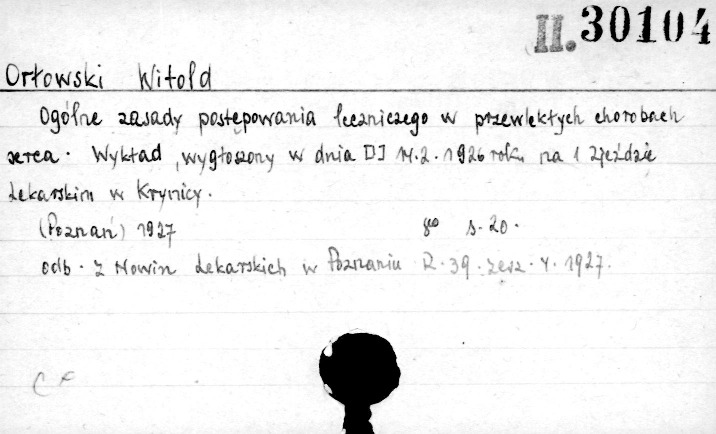 II. 30104
Orłowski Witold
Ogólne zasady postępowania leczniczego w przewlekłych chorobach
serca. Wykład, wygłoszony w dnia [] 14.2.1926 rok. na 1 zjeździe
Lekarskim w Krynicy.
(Poznań) 1927 8⁰ s. 20.
odb. z Nowin Lekarskich w Poznaniu R. 39. zesz. 4. 1927.